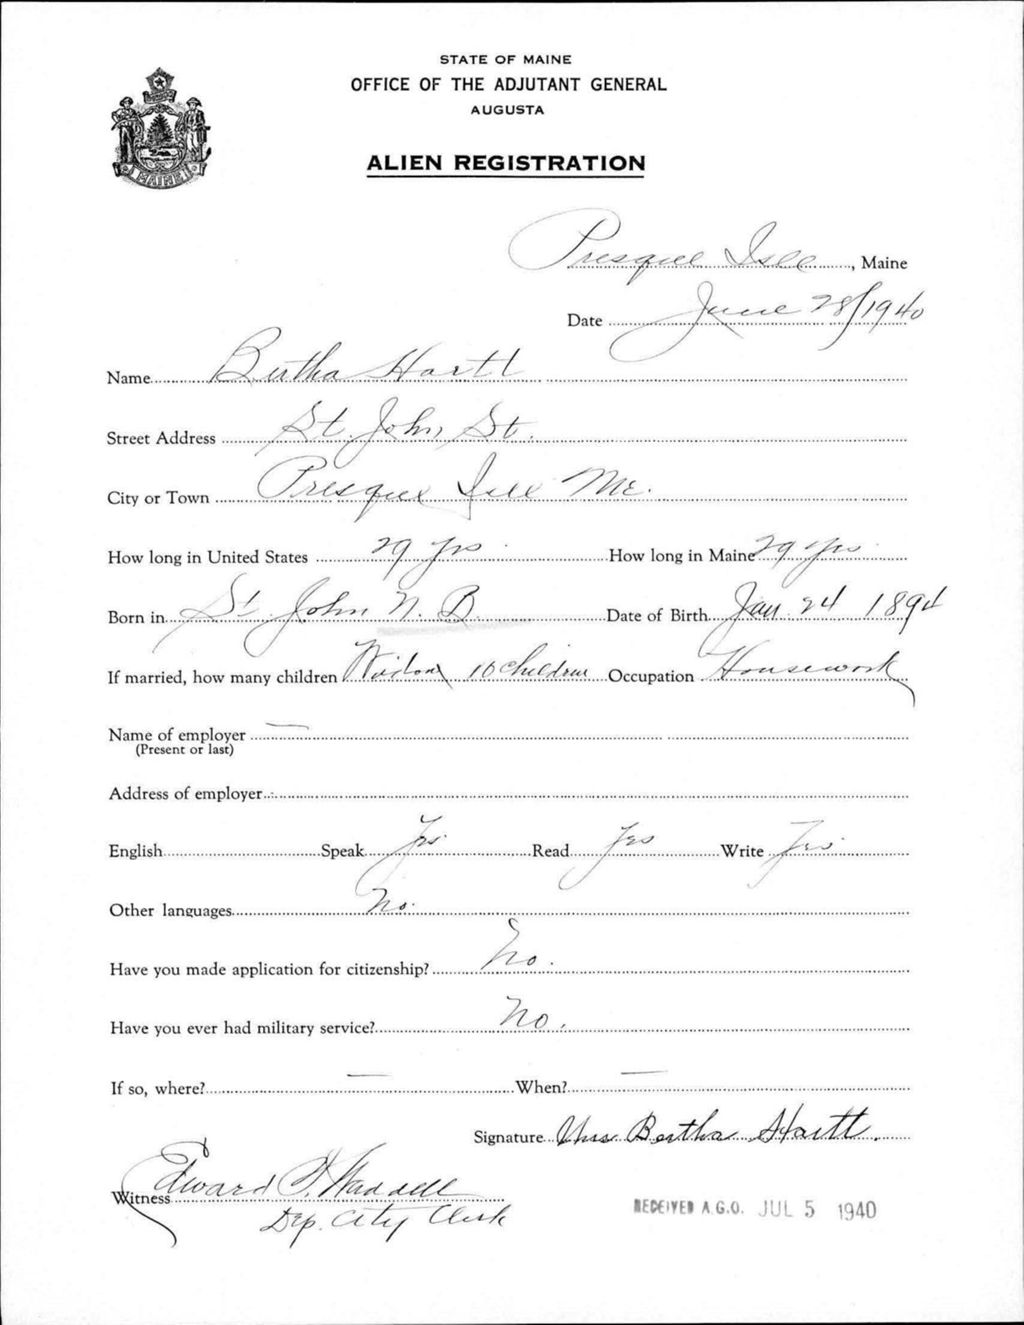 STATE OF MAINE
OFFICE OF THE ADJUTANT GENERAL
AUGUSTA
ALIEN REGISTRATION
MAINE
Presque Isle, Maine
Date June 28/1940
Name Bertha Hartt
Street Address St. John St.
City or Town Presque Isle Me.
How long in United States 29 yrs How long in Maine 29 yrs
Born in St John N. B. Date of Birth Jan. 24 1894
If married, how many children Widow 10 Children Occupation Housework
Name of employer —
(Present or last)
Address of employer
English Speak Yes Read Yes Write Yes
Other languages No.
Have you made application for citizenship? No.
Have you ever had military service? No.
If so, where? — When? —
Signature Mrs Bertha Hartt.
Witness Edward P. Waddell
Dep. City Clerk
RECEIVED A.G.O. JUL 5 1940